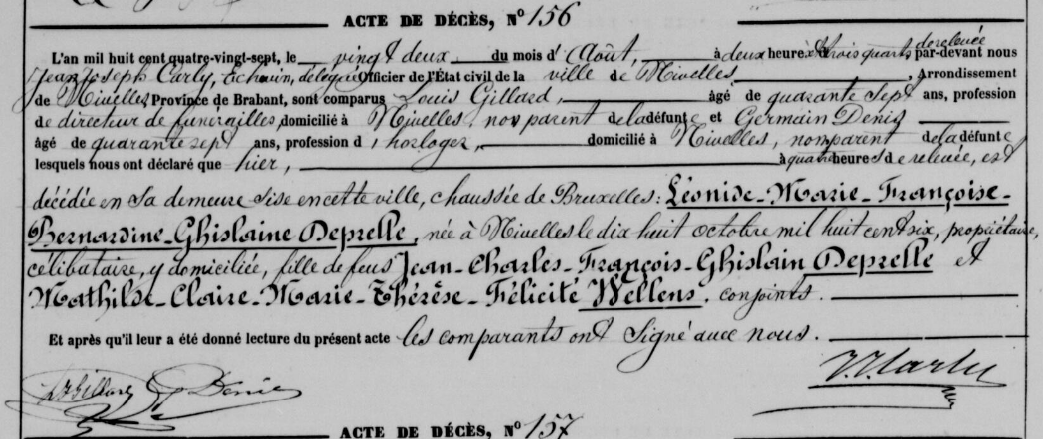 ACTE DE DÉCÈS, N° 156
L'an mil huit cent quatre-vingt-sept, le vingt deux du mois d'Août, à deux heures trois quarts de relevée par-devant nous
Jean Joseph Carly, Echevin, délégué Officier de l'État civil de la ville de Nivelles, Arrondissement
de Nivelles Province de Brabant, sont comparus Louis Gillard, âgé de quarante sept ans, profession
de directeur de funerailles, domicilié à Nivelles, non parent de la défunte et Germain Denis
âgé de quarante sept ans, profession d'horloger, domicilié à Nivelles, non parent de la défunte
lesquels nous ont déclaré que hier, à quatre heures de relevée, est
décédée en sa demeure sise en cette ville, chaussée de Bruxelles: Léonide-Marie-Françoise-
Bernardine-Ghislaine Deprelle, née à Nivelles le dix huit octobre mil huit cent six, propriétaire,
célibataire, y domiciliée, fille de feus Jean-Charles-François-Ghislain Deprelle et
Mathilde-Claire-Marie-Thérèse-Félicité Wellens, conjoints.
Et après qu'il leur a été donné lecture du présent acte les comparants ont signé avec nous.
Gillard G Denis J J Carly
ACTE DE DÉCÈS, N° 157